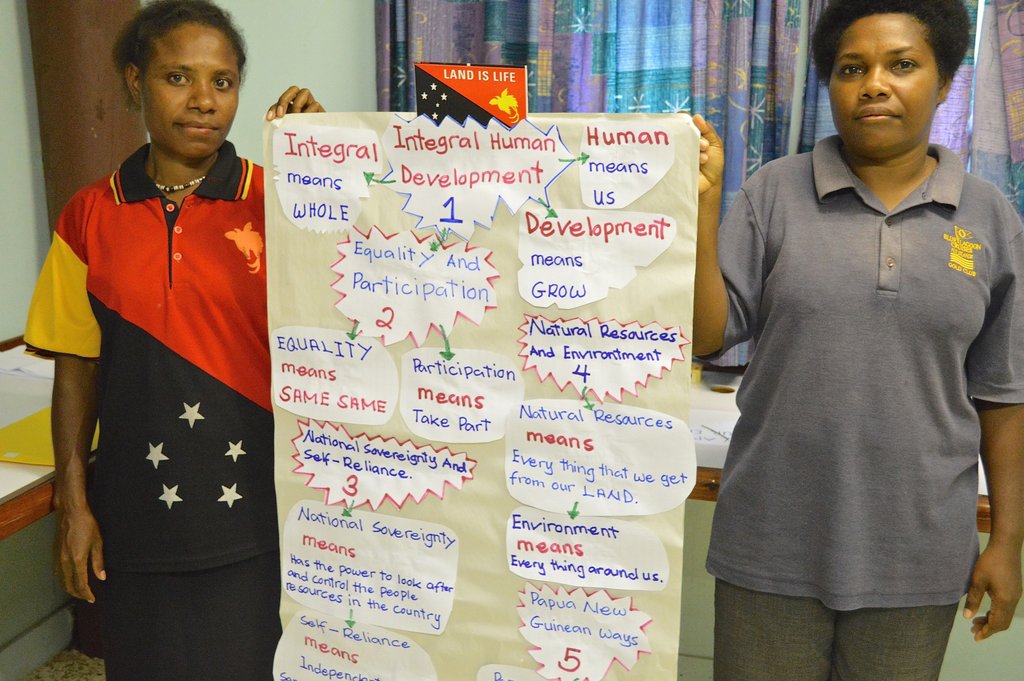 LAND IS LIFE
Integral
means
WHOLE
Integral Human
Development
1
Human
means
US
Development
means
GROW
Equality And
Participation
2
EQUALITY
means
SAME SAME
Participation
means
Take Part
National Sovereignty And
Self-Reliance.
3
National Sovereignty
means
Has the power to look after
and control the people
resources in the country
Self-Reliance
means
Natural Resources
And Environtment
4
Natural Resources
means
Every thing that we get
from our LAND.
Environment
means
Every thing around us.
Papua New
Guinean Ways
5
BLUE LAGOON
GOLD CLUB